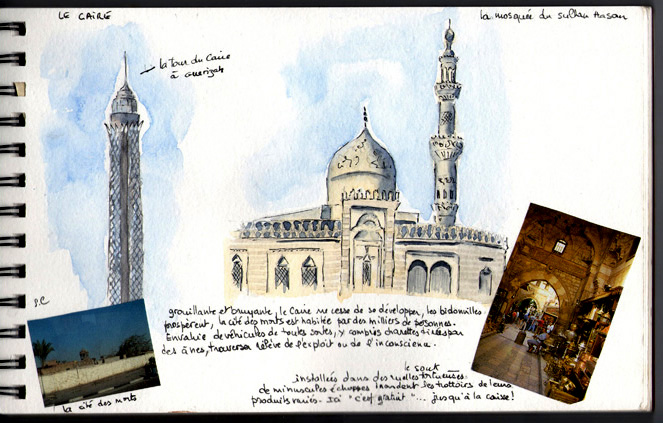 LE CAIRE
la mosquée du sultan Hasan
la tour du Caire
à Guerizah
grouillante et bruyante, le Caire ne cesse de se développer, les bidonvilles
prospèrent, la cité des morts est habitée par des milliers de personnes.
Envahie de véhicules de toutes sortes, y compris charrettes tirées par
des ânes, traverser relève de l'exploit ou de l'inconscience.
le souk
installées dans des ruelles tortueuses
de minuscules échoppes inondent les trottoirs de leurs
produits variés. Ici "c'est gratuit"... jusqu'à la caisse!
la cité des morts